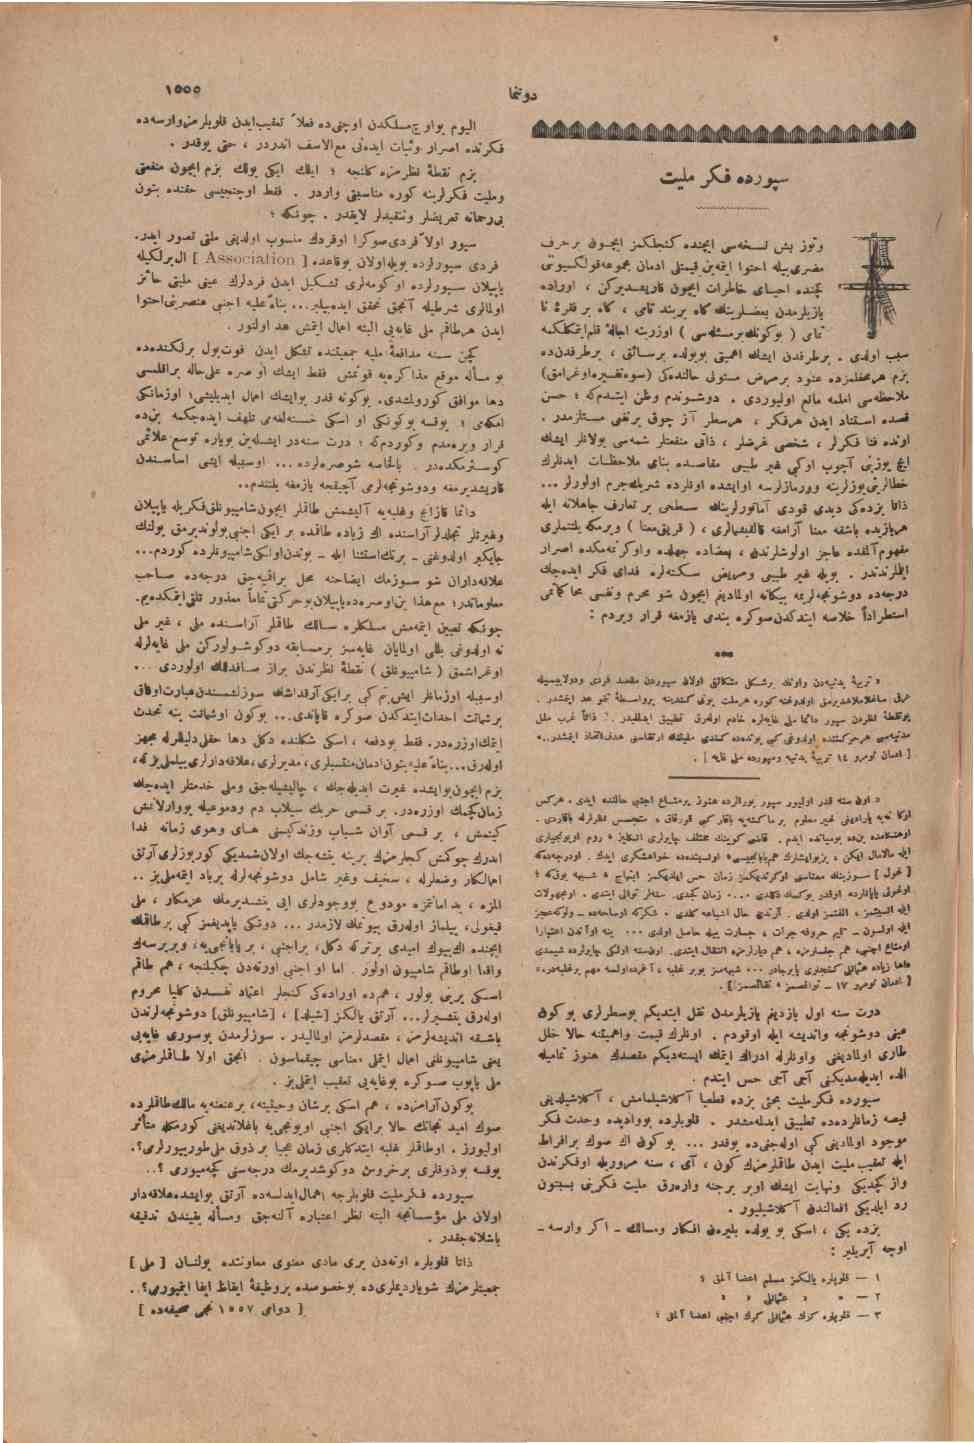 دوننما
١٥٥٥
سپورده فكر مليت
وتوز بش نسخه‌سی ایچنده كنجلكمز ایچون بر حرف
مضری بیله احتوا ایتمه‌ین قیمتلی ادمان مجموعه قولكسیونی
ایچنده احیای خاطرات ایچون قاریشدیركن ، اوراده
یازیلرمدن بعضلرینك كاه بر بند تامی ، كاه بر فقرهٔ نا
تمامی ( بوكونك بر مسئله‌سی ) اوزرینه اجالهٔ قلم ایتمكلكمه
سبب اولدی . بر طرفدن ایشك اهمیتی بویولده بر سائق ، بر طرفدن ده
بزم هر محفلمزده عنود بر مرض مستولی حالنده‌كی (سوء تفسیره اوغرامق)
ملاحظه‌سی املمه مانع اولیوردی . دوشوندم وطن ایتدم كه ؛ حسن
قصده استناد ایدن هر فكر ، هر سطر آز چوق بر نفعی مستلزمدر .
اونده فنا فكرلر ، شخصی غرضلر ، ذاتی منفعتلر شمه‌سی بولانلر ایشك
ایچ یوزینی آچوب اوكی غیر طبیعی مقاصده بنای ملاحظات ایدنلرك
خطالرینی یوزلرینه وورمازلرسه اوایشده اونلرده شریك جرم اولورلر ...
ذاتا بزده‌كی دیدی قودی آماتورلرینك سطحی بر تعارف جاهلانه ایله
هر یازیده باشقه معنا آرامغه قالقیشمالری ، ( قریق معنا ) ویرمكه یلتنملری
مفهوم آلنمده عاجز اولوشلرندن ، بعضاده جهلده واوكرنمه‌مكده اصرار
ایتلرندندر . بویله غیر طبیعی ومریض سكته‌لره فدای فكر ایده‌جك
درجه‌ده دوشونجه‌لریمه بیكانه اولمادیغم ایچون شو محرم ونفسی محاكماتمی
استطراداً خلاصه ایتدكدن سوكره بندمی یازمغه قرار ویردم :
***
« تربیهٔ بدنیه‌دن واونك بر شكل مشكاتی اولان سپوردن مقصد فردی ودولاییسیله
عرقی صاغلاملاشدیرمق اولدوغنه كوره هر ملت بونی كندینه بر واسطهٔ نمو عد ایتمشدر .
بونقطهٔ نظردن سپور دائما ملی غایه‌لره خادم اولارق تطبیق ایدیلیر . ذاتاً غرب ملل
مدنیه‌سی هر حركتنده اولدوغی كبی بونده‌ده كندی ملیتنك ارتقاسنی هدف اتخاذ ایتمشدر..»
[ ادمان نومرو ١٤ تربیهٔ بدنیه وسپورده ملی غایه ] .
« اون سنه قدر اولیور سپور بورالرده هنوز بر متاع اجنبی حالنده ایدی . هركس
اوكا نه‌یه یارادیغی غیر معلوم بر ماكنه‌یه باقار كبی قورقاق ، متجسس نظرلرله باقاردی .
اوهنكامده بن ده بومیانده ایدم . قاضی كوینك مختلف چایرلری انكلیز ، روم اویونجیلری
ایله مالامال ایكن ، بز بویشلرك هم یابانجیسی ، اولسیتده‌ده خواهشكری ایدك . اودرجه‌ده كه
[ غول ] سوزینك معناسنی اوكرندیكمز زمان حس ایلدیكمز ابتهاج ، شبهه یوق كه ؛
اونلرك یاپانلرده اوقدر یوكسك دكلدی .... زمان كچدی . سنه‌لر توالی ایتدی . اوبچهولات
ایله آلیشیتمز ، الفتمز اولدی . آرتدی حال اشباعه كلدی . شكركه اوساحه‌ده ــ ولوكه عجز
ایله اولسون ــ تمیم حروفه جرات ، جسارت بیله حاصل اولدی ... ینه اوآندن اعتباراً
اومتاع اجنبی، هم جلسلرمزه ، هم دیارلرمزه انتقال ایتدی. اون سنه اولكی چایرلرده شیمدی
داها زیاده عثمانلی كنجلری پابرجادر ... شبهه‌سز بو بر غلبه ، آخرده اولسه مهم بر غلبه‌در..»
[ ادمان نومرو ١٧ ــ نواقصمز ، نقائصمز ] .
درت سنه اول یازدیغم یازیلرمدن نقل ایتدیكم بوسطرلری بو كون
عینی دوشونجه واندیشه ایله اوقودم . اونلرك قیمت واهمیتنه حالا خلل
طاری اولمادیغنی واونلرله ادراك ایتمك ایسته‌دیكم مقصدك هنوز تمامیله
الده ایدیله‌مدیكنی آجی آجی حس ایتدم .
سپورده فكر ملیت بحثی بزده قطعیا آكلاشیلمامش ، آكلاشیلدیغی
قیصه زمانلرده‌ده تطبیق ایدلمه‌مشدر . قلوبلرده بووادیده وحدت فكر
موجود اولمادیغی كبی اوله‌جغی‌ده یوقدر ... بوكون اك صوك بر افراط
ایله تعقیب ملیت ایدن طاقملرمزك كون ، آی ، سنه مروریله اوفكرندن
واز كچدیكی ونهایت ایشك اوبر برجنه واره‌رق ملیت فكرینی بسبتون
رد ایلدیكی افعالندن آكلاشیلیور .
بزده یكی ، اسكی بو یولده بلیره‌ن افكار ومسالك ــ اكر وارسه ــ
اوچه آیریلیر :
١ ــ قلوبلره یالكز مسلم اعضا آلمق ؛
٢ ــ » » عثمانلی » »
٣ ــ قلوبلره كرك عثمانلی كرك اجنبی اعضا آلمق ؛
الیوم بو اوچ مسلكدن اوچنی‌ده فعلاً تعقیب ایدن قلوبلرمز وارسه‌ده
فكرنده اصرار وثبات ایده‌نی مع‌الاسف اندردر ، حتی یوقدر .
بزم نقطهٔ نظرمزه كلنجه ؛ ایلك ایكی یولك بزم ایچون منفعتی
وملیت فكرلرینه كوره مناسبتی واردر . فقط اوچنجیسی حقنده بتون
بی‌رحمانه تعریضلر وتنقیدلر لایقدر . چونكه ؛
سپور اولا فردی صوكرا اوفردك منسوب اولدیغی ملتی تصور ایدر.
فردی سپورلرده بویله اولان بوقاعده [ Association ] ال‌برلكیله
یاپیلان سپورلرده اوكومه‌لری تشكیل ایدن فردلرك عینی ملیتی حائز
اولمالری شرطیله آنجق تحقق ایده‌بیلیر... بناءً علیه اجنبی عنصرینی احتوا
ایدن هر طاقم ملی غایه‌یی البته اهمال ایتمش عد اولنور .
كچن سنه مدافعهٔ ملیه جمعیتنده تشكل ایدن فوت‌بول برلكنده‌ده
بو مسأله موقع مذاكره‌یه قونمش فقط ایشك او صره علی حاله براقلمسی
دها موافق كورولمشدی. بوكونه قدر بوایشك اهمال ایدیلیشی؛ اوزمانكی
امكه‌می ؛ یوقسه بوكونكی او اسكی خسته‌لغه‌می تلهف ایده‌جكمه بن‌ده
قرار ویره‌مدم وكوردم‌كه ؛ درت سنه‌در ایشله‌ین بویاره توسع علائمی
كوسترمكده‌در . بالخاصه شوصره‌لرده ... اوسببله ایشی اساسندن
قاریشدیرمغه ودوشونجه‌لرمی آچیقجه یازمغه یلتندم..
دائما قازانج وغلبه‌یه آلیشمش طاقملر ایچون شامپیونلق فكریله یاپیلان
وغیرتلر تجلدلر آراسنده اك زیاده طاقمده بر ایكی اجنبی بولوندیرمق یولنك
جایكیر اولدوغنی ــ بر تك استثنا ایله ــ بوندن اولكی شامپیونلرده كوردم...
علاقه‌داران شو سوزمك ایضاحنه محل براقمیه‌جق درجه‌ده صاحب
معلوماتدر؛ مع هذا بن اوصره‌ده یاپیلان بوحركتی تماماً معذور تلقی ایتمكده‌یم.
چونكه تعیین ایتمه‌مش مسلكلره سالك طاقملر آراسنده ملی ، غیر ملی
نه اولدوغی بللی اولمایان غایه‌سز بر مسابقه دوكوشولوركن ملی غایه‌لرله
اوغراشمق ( شامپیونلق ) نقطهٔ نظرندن براز صافدللك اولوردی ...
اوسببله اوزمانلر ایش بم كبی بر ایكی آرقداشك سوزلشمسندن عبارت اوفاق
بر شماتت احداث ایتدكدن صوكره قاپاندی... بوكون اوشماتت ینه تحدث
ایتمك اوزره‌در. فقط بودفعه ، اسكی شكلنده دكل دها حقلی دلیللرله مجهز
اوله‌رق... بناءً علیه بتون ادمان منتسبلری، مدیرلری، علاقه‌دارلری بیلملی‌یز كه،
بزم ایچون بوایشده غیرت ایدیله‌جك ، چالیشیله‌جق وملی خدمتلر ایده‌جك
زمان كچمك اوزره‌در. بر قسمی حربك سیلاب دم ودموعیله یووارلانمش
كیتمش ، بر قسمی آوان شباب وزندكیسنی های وهوی زمانه فدا
ایدرك چوكمش كنجلرمزك یرینه یتشه‌جك اولان شمدیكی كوربوزلری آرتق
اهمالكار وضعلرله ، سخیف وغیر شامل دوشونجه‌لرله برباد ایتمه‌ملی‌یز ..
المزه ، ید امانتمزه مودوع بووجودلری ایی یتشدیرمك عزمكار ، ملی
قیغولی، بیلماز اوله‌رق بیوتمك لازمدر ... دونكی یاپدیغمز كبی بر طاقمك
ایچنده اك بیوك امیدی بر تركه دكل، بر اجنبی ، بر یابانجی‌یه، ویررسه‌ك
واقعا اوطاقم شامپیون اولور . اما او اجنبی اورته‌دن چكیلنجه ، هم طاقم
اسكی یرینی بولور ، هم‌ده اوراده‌كی كنجلر اعتماد نفسدن كلیا محروم
اوله‌رق یتشیرلر... آرتق یالكز [شیلد] ، [شامپیونلق] دوشونجه‌لرندن
باشقه اندیشه‌لرمز ، مقصدلرمز اولمالیدر . سوزلرمدن بوسوری غایه‌یی
یعنی شامپیونلغی اهمال ایتملی معناسی چیقماسون . انجق اولا طاقملرمزی
ملی یاپوب صوكره بوغایه‌یی تعقیب ایتملی‌یز .
بوكون آرامزده ، هم اسكی برشان وحیثیته، بر عنعنه‌یه مالك طاقملرده
صوك امید نجاتك حالا بر ایكی اجنبی اویونجی‌یه باغلاندیغنی كورمكله متأثر
اولیورز . اوطاقملر غلبه ایتدكلری زمان عجبا بر ذوق ملی طویییورلرمی؟.
یوقسه بوذوقلری بر خروس دوكوشدیرمك درجه‌سنی كچه‌میورمی ؟ ..
سپورده فكر ملیت قلوبلرجه اهمال ایدلسه‌ده آرتق بوایشده علاقه‌دار
اولان ملی مؤسساتجه البته نظر اعتباره آلنه‌جق ومسأله یقیندن تدقیقه
باشلانه‌جقدر .
ذاتا قلوبلره اوته‌دن بری مادی معنوی معاونتده بولنان [ ملی ]
جمعیتلرمزك شویاردیملری‌ده بوخصوصده بر وظیفهٔ ایقاظ ایفا ایتمیورمی؟ ..
[ دوامی ١٥٥٧ نجی صحیفه‌ده ]